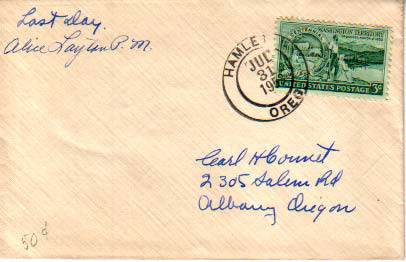 Last Day.
Alice Layton P. M.
HAMLE
JUL
31
19
OREG
WASHINGTON TERRITORY
UNITED STATES POSTAGE 3¢
Carl H
2305 Salem Rd
Albany Oregon
50¢